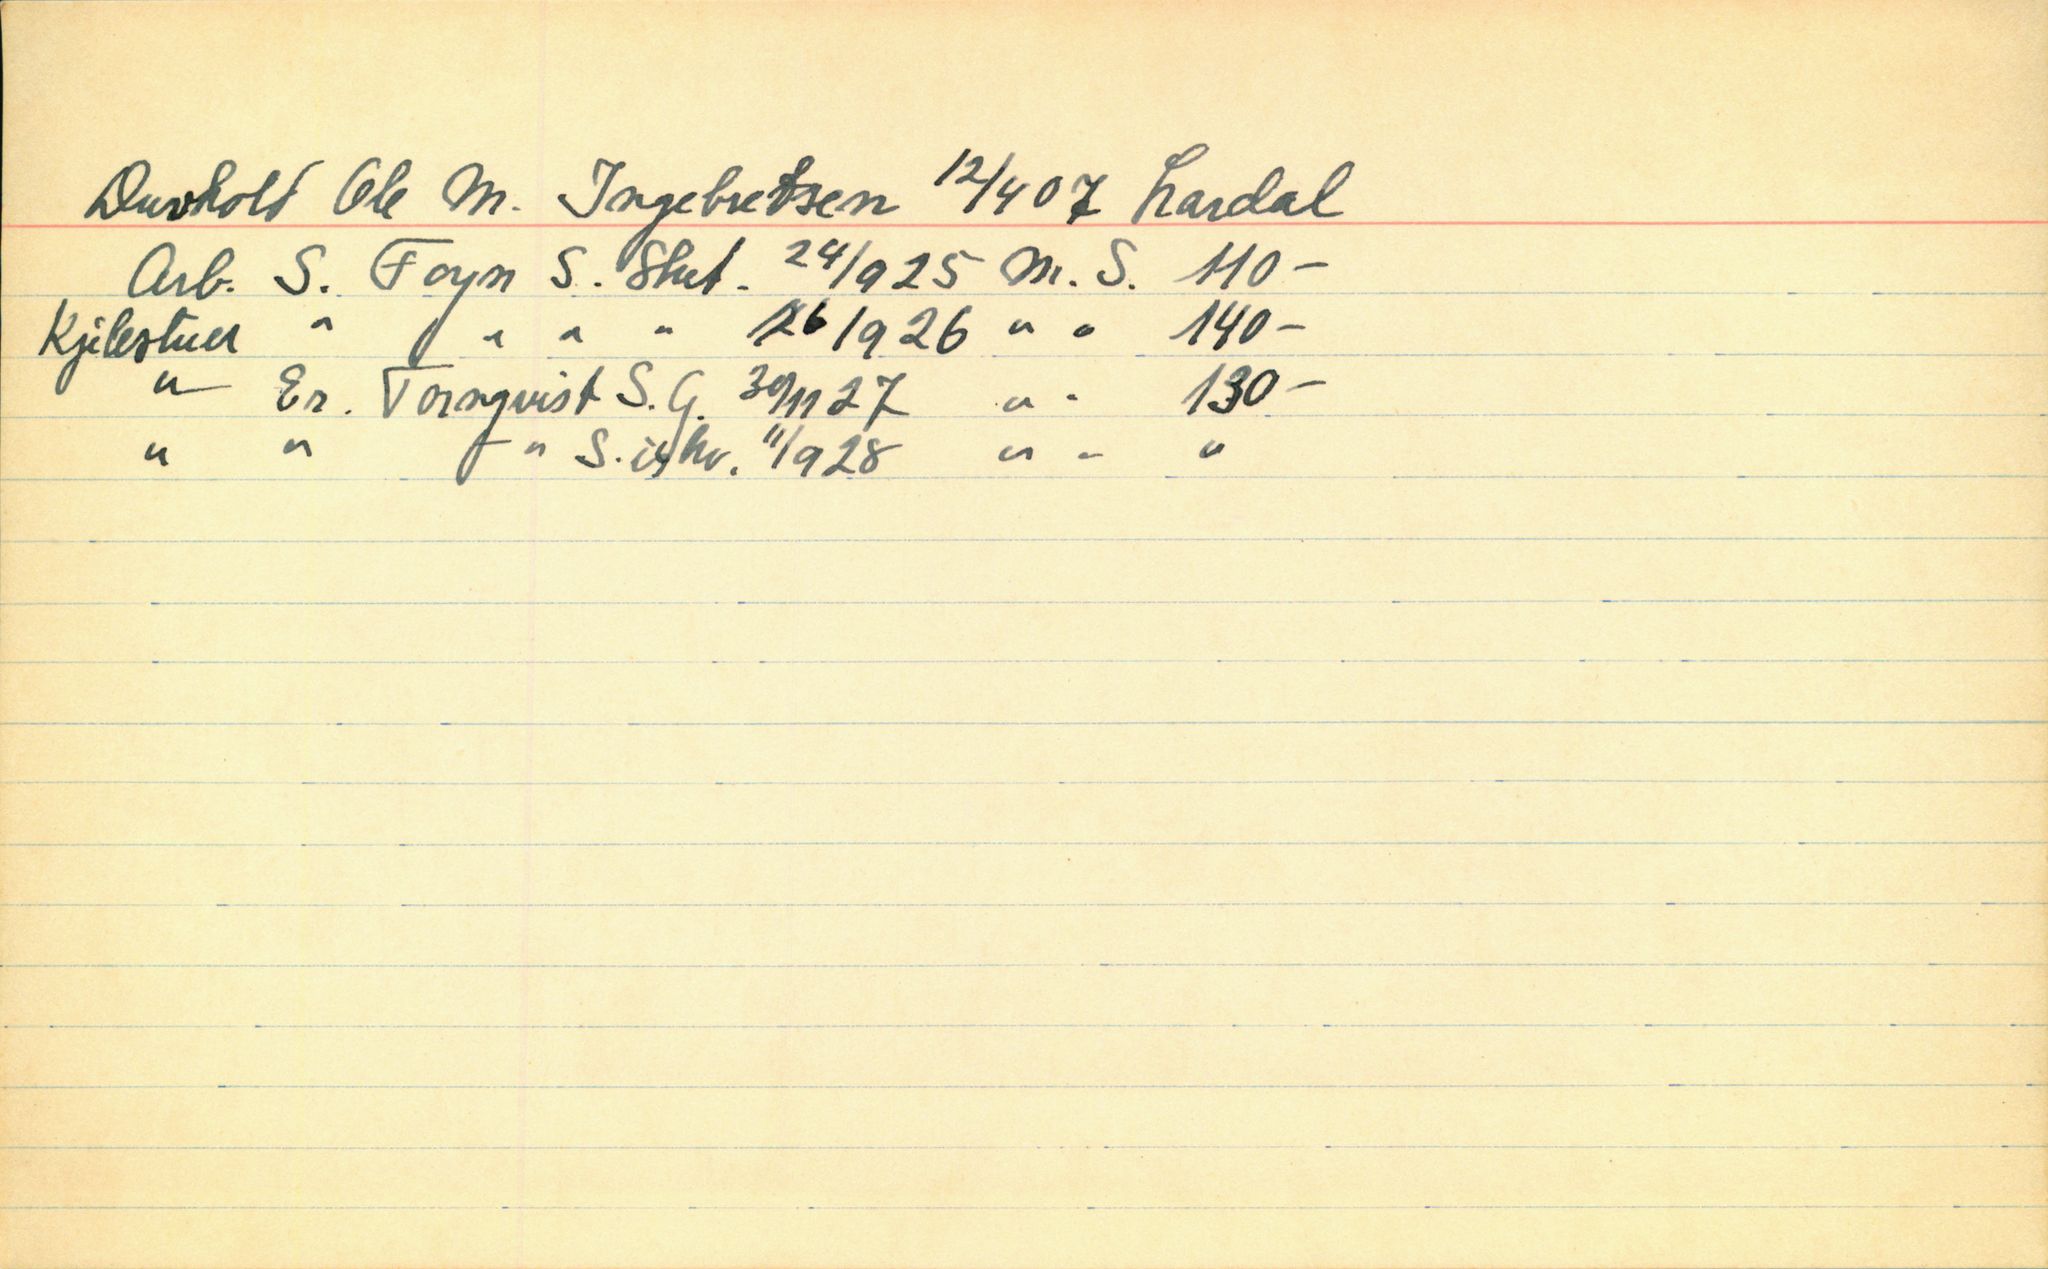 Durhold Ole M. Ingebretsen 12/4 07 Lardal
Arb. S. Foyn S. Shet. 24/9 25 M. S. 110 –
Kjelestuer " " " " 26/9 26 " " 140 –
" Er. Tornqvist S. G. 30/11 27 " " 130 –
" " " S. ishv. 11/9 28 " " "